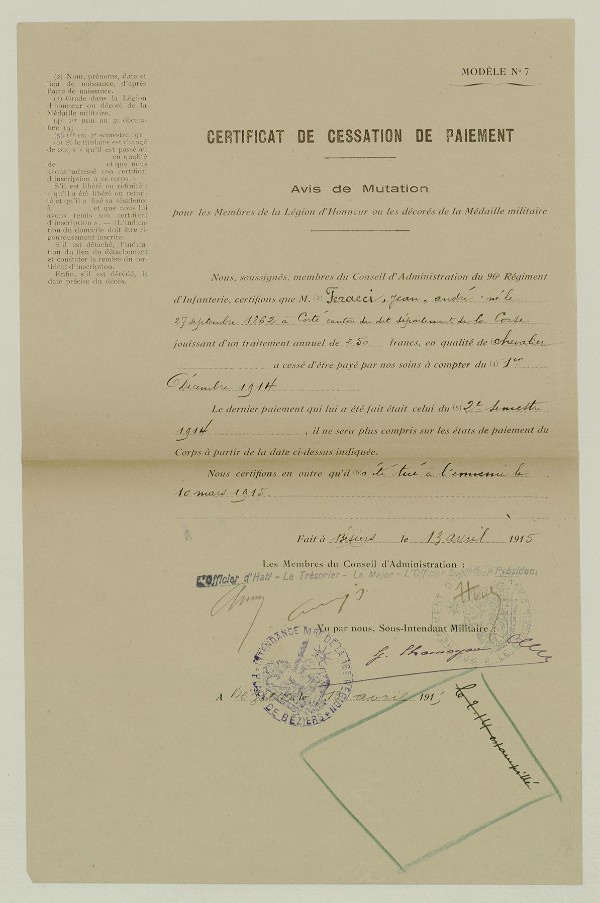 MODÈLE N° 7
(2) Nom, prénoms, date et
lieu de naissance, d'après
l'acte de naissance.
(3) Grade dans la Légion
d'honneur ou décoré de la
Médaille militaire.
(4) 1er juin au 31 décem-
bre 19
(5) 1er ou 2e semestre 191
(6) Si le titulaire est changé
de corps « qu'il est passé au
en qualité
de et que nous
avons adressé son certificat
d'inscription à ce corps ».
S'il est libéré ou retraité :
« qu'il a été libéré ou retrai-
té et qu'il a fixé sa résidence
à et que nous lui
avons remis son certificat
d'inscription ». — (L'indica-
tion du domicile doit être ri-
goureusement inscrite.
S'il est détaché, l'indica-
tion du lieu du détachement
et constater la remise du cer-
tificat d'inscription.
Enfin, s'il est décédé, la
date précise du décès.
CERTIFICAT DE CESSATION DE PAIEMENT
Avis de Mutation
pour les Membres de la Légion d'Honneur ou les décorés de la Médaille militaire
Nous, soussignés, membres du Conseil d'Administration du 96e Régiment
d'Infanterie, certifions que M. (2) Feracci, Jean, André né le
27 septembre 1862 à Corté canton du dit département de la Corse
jouissant d'un traitement annuel de 250 francs, en qualité de (3) chevalier
a cessé d'être payé par nos soins à compter du (4) 1er
Décembre 1914
Le dernier paiement qui lui a été fait était celui du (5) 2e semestre
1914, il ne sera plus compris sur les états de paiement du
Corps à partir de la date ci-dessus indiquée.
Nous certifions en outre qu'il (6) a été tué à l'ennemi le
10 mars 1915
Fait à Béziers le 13 avril 1915
Les Membres du Conseil d'Administration :
L'Officier d'Habt - Le Trésorier - Le Major - L'Officier Supérieur Président
Vu par nous, Sous-Intendant Militaire :
INTENDANCE MRE DE LA 16E REGION
PLACE DE BÉZIERS
A Béziers le avril 1915
le 2-14 estampillé